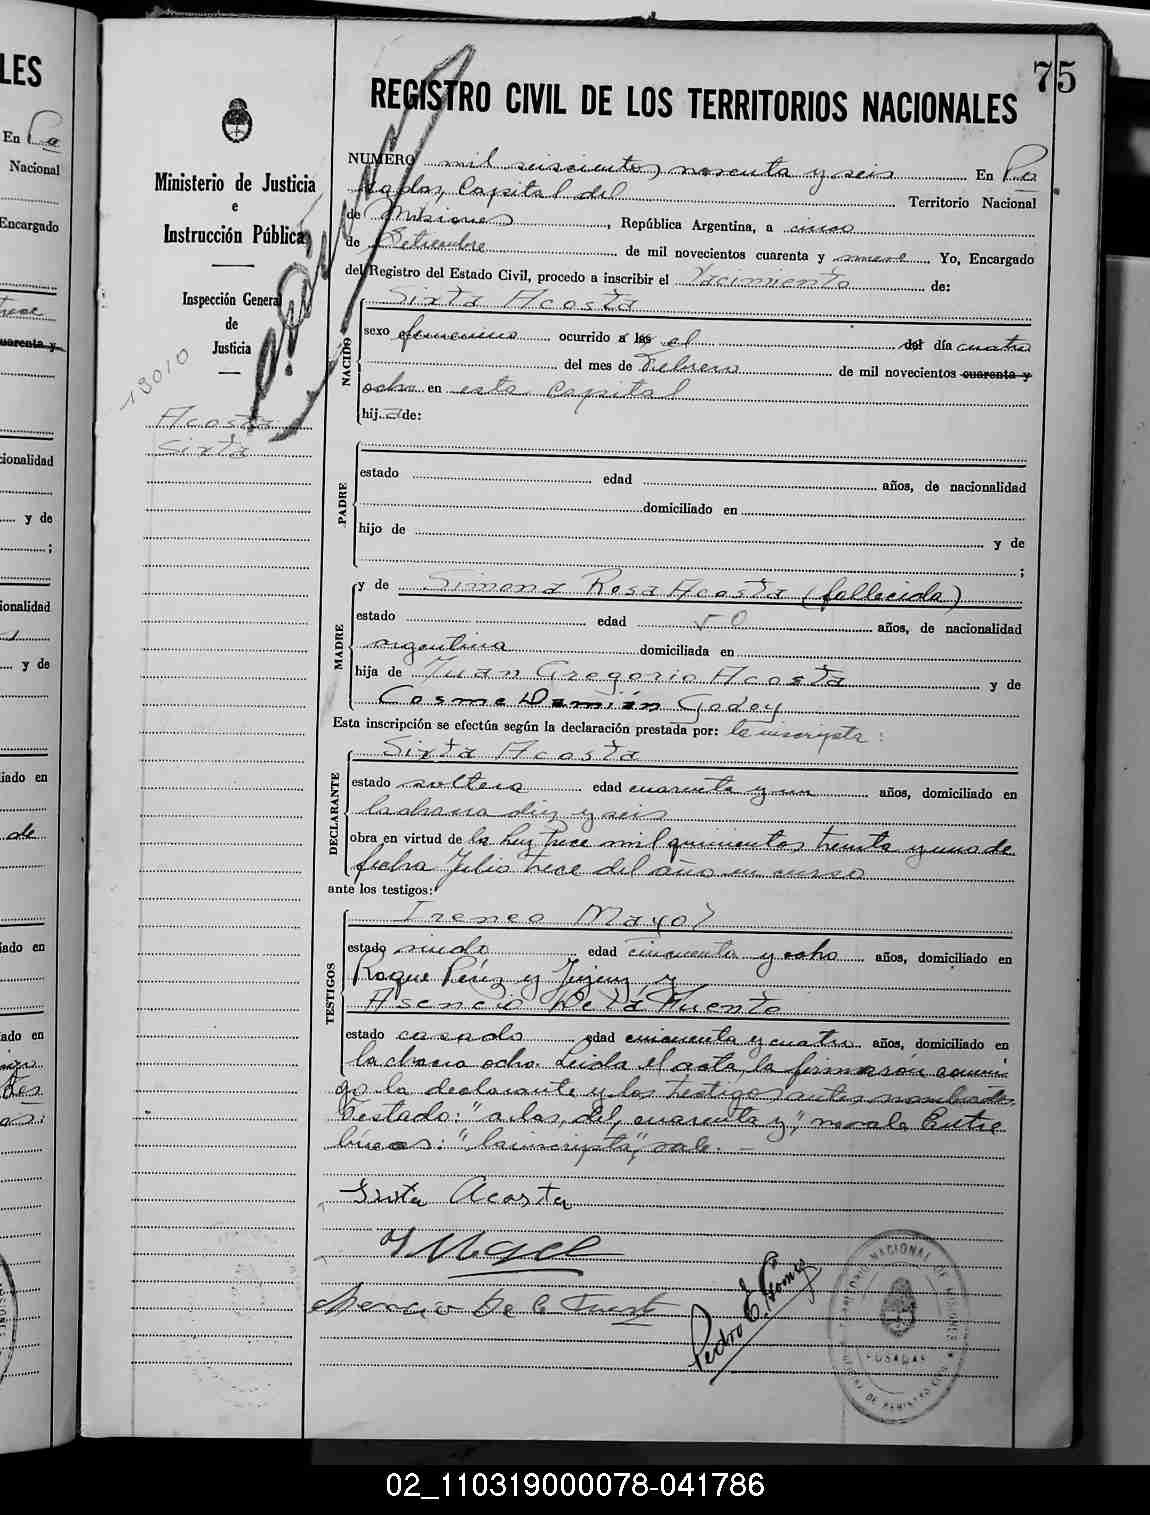 75
LES
REGISTRO CIVIL DE LOS TERRITORIOS NACIONALES
Ministerio de Justicia
e
Instrucción Pública
Inspección General
de
Justicia
13010
Acosta
Sixta
NUMERO mil seiscientos noventa y seis En Po
sadas, Capital del Territorio Nacional
de Misiones, República Argentina, a cinco
de Setiembre de mil novecientos cuarenta y nueve. Yo, Encargado
del Registro del Estado Civil, procedo a inscribir el Nacimiento de:
NACIDO
Sixta Acosta
sexo femenino ocurrido a las el del día cuatro
del mes de Febrero de mil novecientos cuarenta y
ocho en esta Capital
hij a de:
PADRE
estado edad años, de nacionalidad
domiciliado en
hijo de y de
;
MADRE
y de Simona Rosa Acosta (fallecida)
estado edad 50 años, de nacionalidad
argentina domiciliada en
hija de Juan Gregorio Acosta y de
Cosme Damián Godoy
Esta inscripción se efectúa según la declaración prestada por: la inscripta:
DECLARANTE
Sixta Acosta
estado soltera edad cuarenta y un años, domiciliado en
la chacra diez y seis
obra en virtud de la ley trece mil quinientos treinta y uno de
fecha Julio trece del año en curso
ante los testigos:
TESTIGOS
Ireneo Mayol
estado viudo edad cincuenta y ocho años, domiciliado en
Roque Pérez y Jujuy, y
Asencio De la Fuente
estado casado edad cincuenta y cuatro años, domiciliado en
la chacra ocho. Leida el acta, la firmaron conmi-
go la declarante y los testigos antes nombrados.
Testado: "a las, del, cuarenta y", no vale. Entre
lineas: "la inscripta", vale. -
Sixta Acosta
I Mayol
Asencio De la Fuente
Pedro E. Gomez
POSADAS
02_110319000078-041786